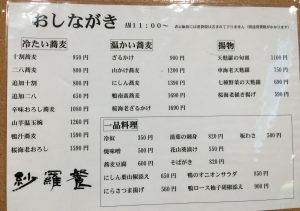 おしながき
AM11:00〜
冷たい蕎麦
十割蕎麦 950円
二八蕎麦 800円
追加十割
追加二八 650円
辛味おろし蕎麦 1050円
山芋蕎麦
鴨汁蕎麦 1590円
桜海老おろし 1590円
温かい蕎麦
ざるかけ 900円
山かけ蕎麦 1300円
にしん蕎麦 1390円
鴨南蕎麦 1690円
桜海老ざるかけ 1690円
揚物
天麩羅の旬顔 1100円
車海老天麩羅 750円
七種野菜の天麩羅 690円
桜海老掻き揚げ 590円
一品料理
冷奴 550円
焼味噌 500円
蕎麦豆腐 600円
にしん棒山椒添え 690円
にらさつま揚げ 560円
湯葉の刺身 820円
花山葵漬け 550円
そばがき 820円
鴨のオニオンサラダ 850円
鴨ロース柚子胡椒添え 900円
板わさ 500円
紗羅餐